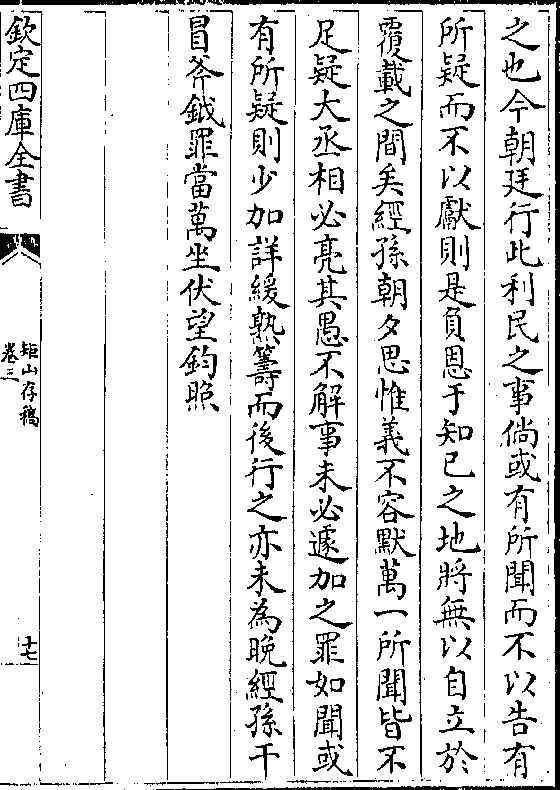 之也今朝廷行此利民之事倘或有所聞而不以告有
所疑而不以獻則是負恩于知己之地將無以自立於
覆載之間矣經孫朝夕思惟義不容默萬一所聞皆不
足疑大丞相必亮其愚不解事未必遽加之罪如聞或
有所疑則少加詳緩熟籌而後行之亦未為晚經孫干
冒斧鉞罪當萬坐伏望鈞照
欽定四庫全書
矩山存稿
卷三
十七